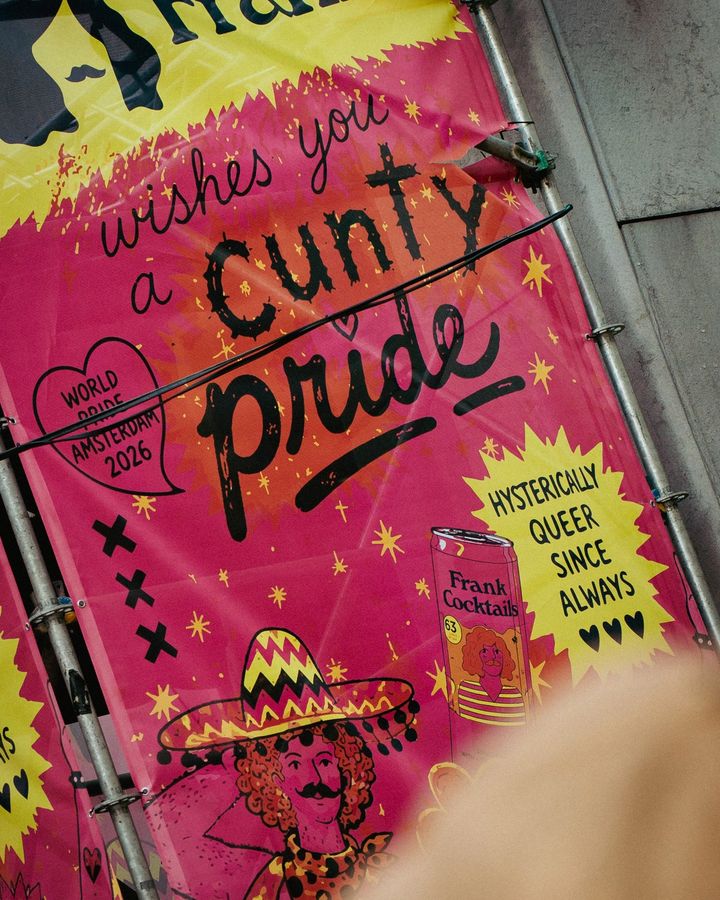 Frank
wishes you
a cunty
pride
WORLD
PRIDE
AMSTERDAM
2026
XXX
HYSTERICALLY
QUEER
SINCE
ALWAYS
Frank
Cocktails
63